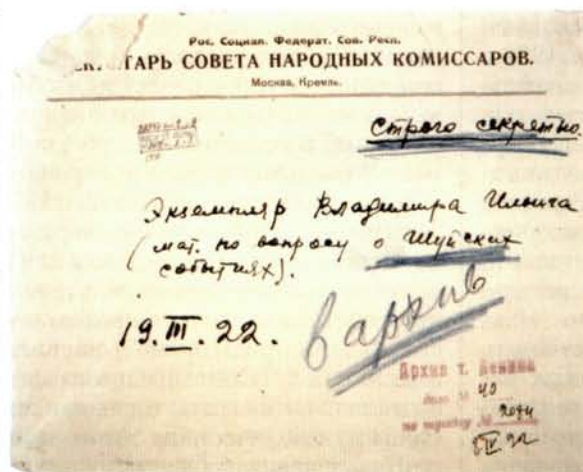 Рос. Социал. Федерат. Сов. Респ.
ТАРЬ СОВЕТА НАРОДНЫХ КОМИССАРОВ.
Москва, Кремль.
Строго секретно
Экземпляр Владимира Ильича
(мат. по вопросу о Шуйских
событиях).
19.III.22.
в архив
Архив т. Ленина
40